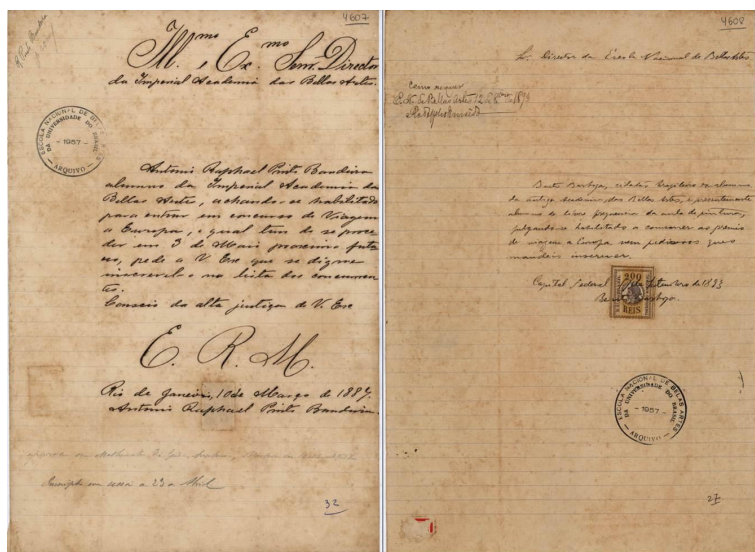 4607
Ill.mo e Ex.mo Senr. Director
da Imperial Academia das Bellas Artes.
ESCOLA NACIONAL DE BELAS ARTES
DA UNIVERSIDADE DO BRASIL
- 1957 -
ARQUIVO
Antonio Raphael Pinto Bandeira
alumno da Imperial Academia das
Bellas Artes, achando-se habilitado
para entrar em concurso de Viagem
a Europa, o qual tem de se proce
der em 3 de Maio proximo futu
ro, pede a V. Exc que se digne
inscrevel-o na lista dos concurren
tes.
Conscio da alta justiça de V. Exc
E. R. M.
Rio de Janeiro, 10 de Março de 1887.
Antonio Raphael Pinto Bandeira.
a 23 de Abril
32
4608
Sr. Director da Escola Nacional de Bellas Artes
Como requer
de Bellas Artes, 12 de
Bento Barboza, cidadão brazileiro ex-alumno
da antiga Academia das Bellas Artes, e presentemente
alumno de livre frequencia da aula de pintura,
julgando-se habilitado a concorrer ao premio
de viagem a Europa vem pedir-vos que o
mandeis inscrever.
Capital Federal de Setembro de 1893
Bento Barboza.
200
REIS
ESCOLA NACIONAL DE BELAS ARTES
DA UNIVERSIDADE DO BRASIL
- 1957 -
ARQUIVO
27